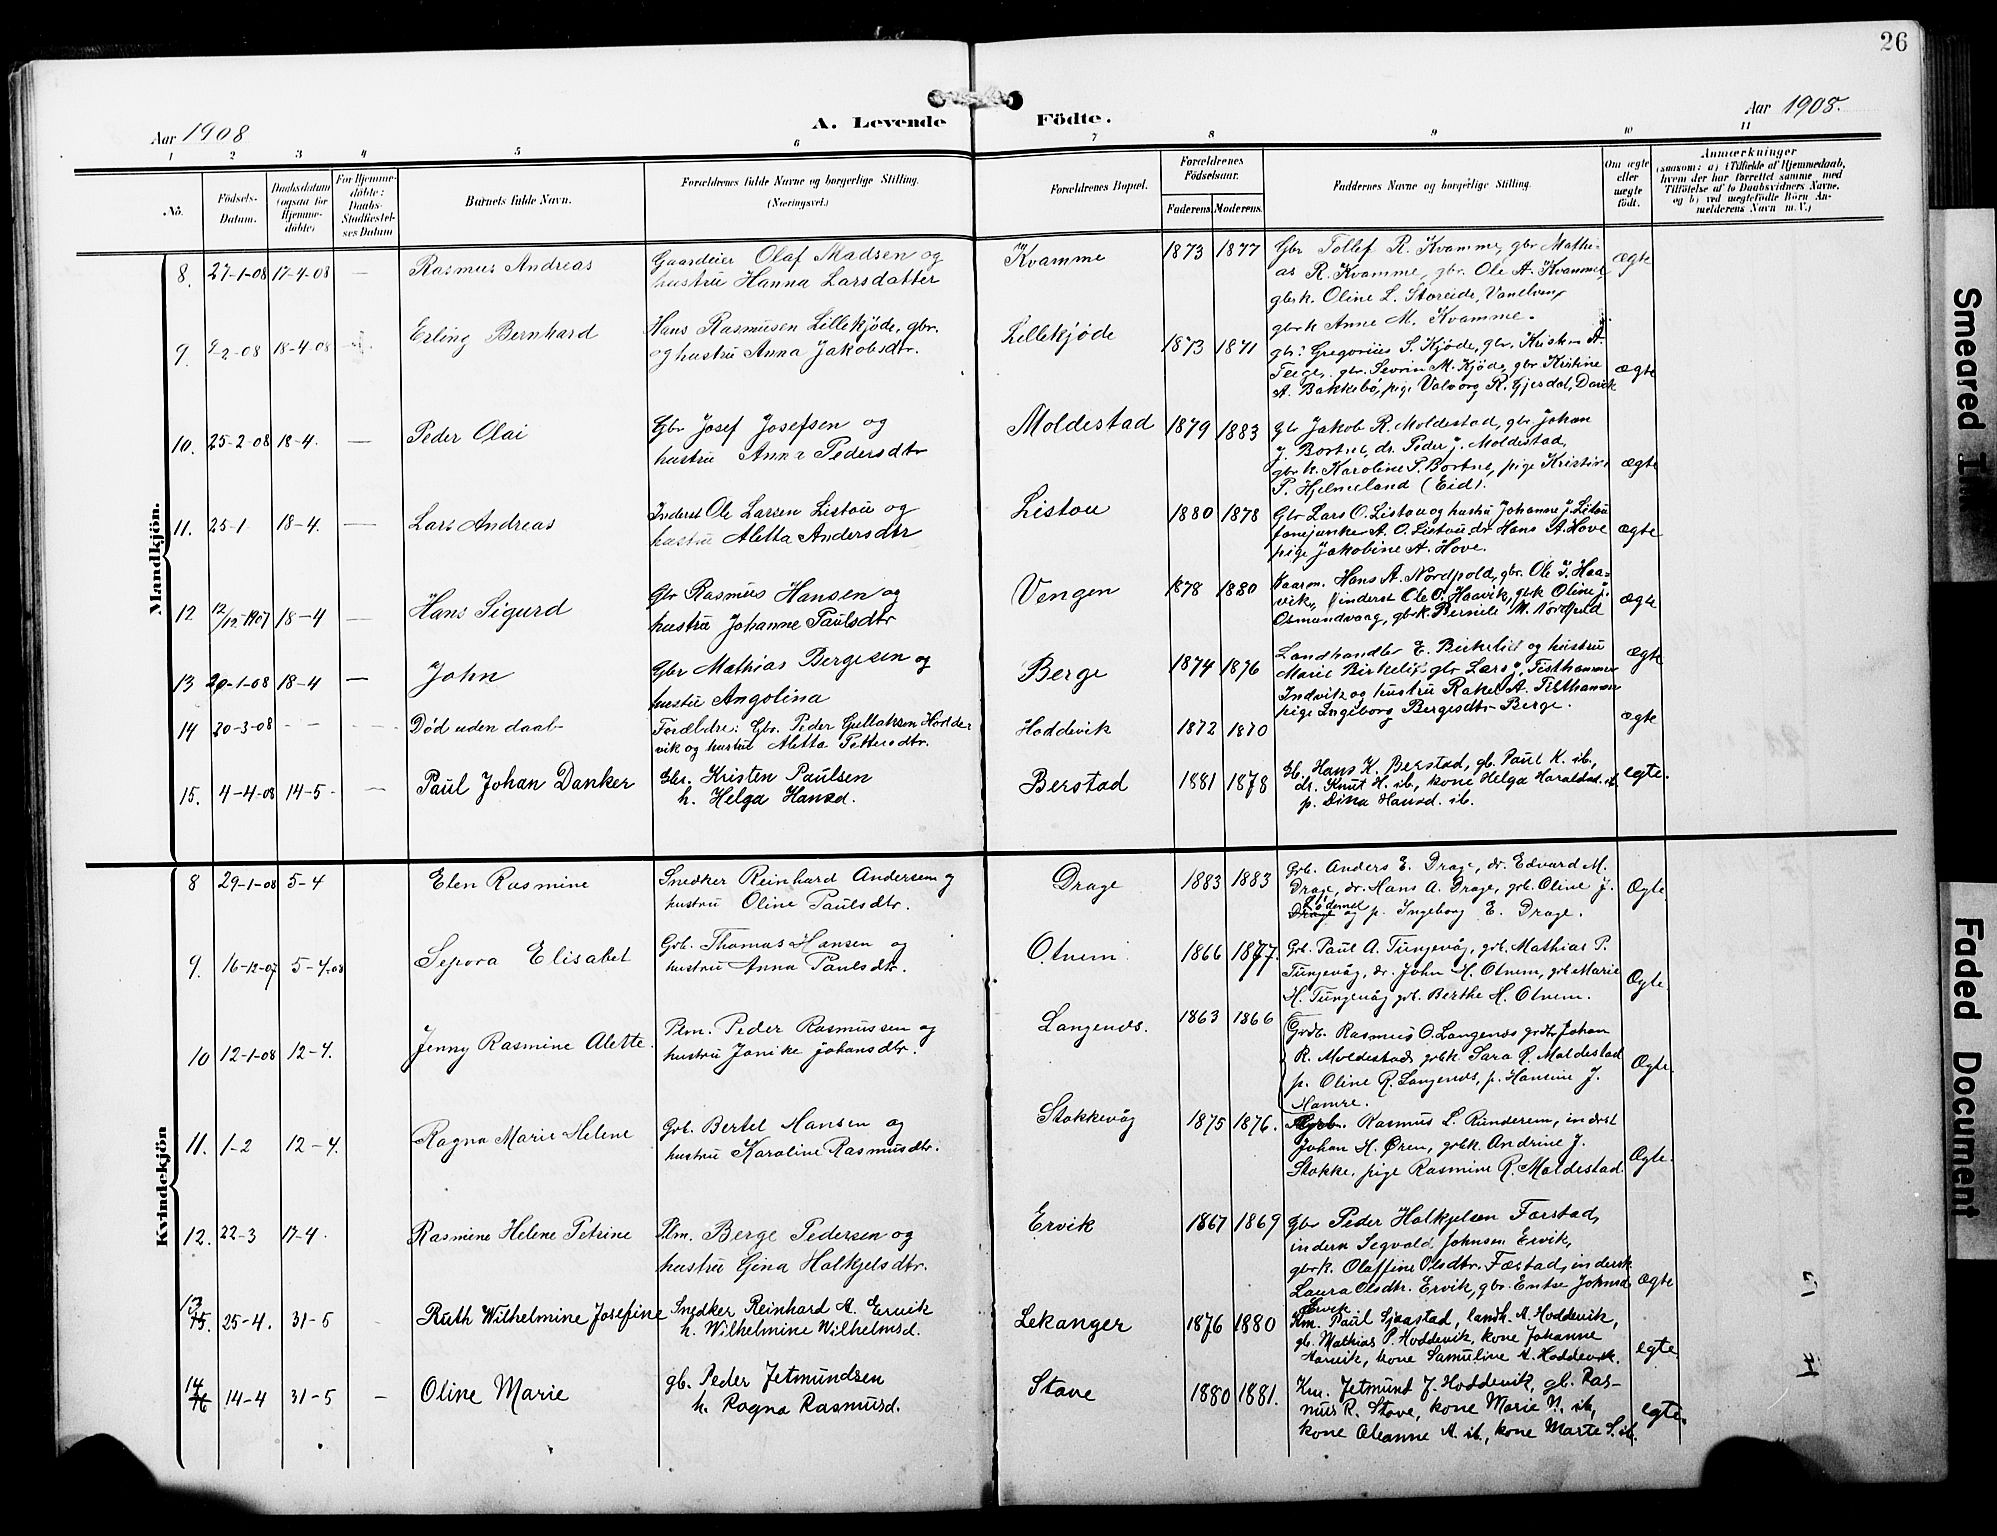 26
Aar 1908
A. Levende Födte.
Aar 1908.
1 2 3 4 5 6 7 8 9 10 11
No.
Födsels-Datum.
Daabsdatum (ogsaa for Hjemme-döbte)
For Hjemme-döbte: Daabs-Stadfæstel-ses Datum
Barnets fulde Navn.
Forældrenes fulde Navne og borgerlige Stilling. (Næringsvei.)
Forældrenes Bopæl.
Forældrenes Födselsaar.
Faderens Moderens.
Faddernes Navne og borgerlige Stilling.
Om ægte eller uægte födt.
Anmærkninger
(saasom: a) i Tilfælde af Hjemmedaab, hvem der har forrettet samme, med Tilföielse af to Daabsvidners Navne, og b) ved uægtefödte Börn An-melderens Navn m. V.)
Mandkjön.
8. 27-1-08 17-4-08 — Rasmus Andreas
Gaardeier Olaf Madsen og
hustru Hanna Larsdatter
Kvamme 1873 1877
Gbr Tollef R. Kvamme, gbr Mathi-
as R. Kvamme, gbr. Ole A. Kvamme,
gbrk. Oline L. Storeide, Vanelven,
gbrk Anne M. Kvamme.
ægte
9. 9-2-08 18-4-08 Erling Bernhard
Hans Rasmusen Lillekjøde, gbr.
og hustru Anna Jakobsdtr.
Lillekjøde 1873 1871
gbr. Gregorius S. Kjøde, gbr. Kristen A.
Teige, gbr. Sevrin M. Kjøde, gbr Kristine
A. Bakkebø, pige Valborg R. Gjesdal, Davik
ægte
10. 25-2-08 18-4. — Peder Olai
Gbr Josef Josefsen og
hustru Anna Pedersdtr
Moldestad 1879 1883
Gbr Jakob R. Moldestad, gbr Johan
J. Bortne, dr. Peder J. Moldestad,
gbr k. Karoline P. Bortne, pige Kristine
P. Hjelmeland (Eid).
ægte
11. 25-1 18-4. — Lars Andreas
Inderst Ole Larsen Listou og
hustru Aletta Andersdtr
Listou 1880 1878
Gbr Lars O. Listou og hustru Johanne J. Listou
fanejunker A. O. Listou dr Hans A. Hove
pige Jakobine A. Hove.
ægte
12 12/12-1907 18-4 — Hans Sigurd
Gbr Rasmus Hansen og
hustru Johanne Paulsdtr
Vengen 1878 1880
Kaarm. Hans A. Nordpold, gbr. Ole I. Haa-
vik, inderst Ole O. Haavik, gbrk Oline J.
Osmundvaag, gbrk. Bernele M. Nordpold
ægte
13 20-1-08 18-4 — John
Gbr Mathias Bergesen og
hustru Angolina
Berge 1874 1876
Landhandler E. Birkelid og hustru
Marie Birkelid gbr Lars J. Tisthammer
Indvik og hustru Rakel A. Tisthammer
pige Ingeborg Bergesdtr Berge.
ægte
14 30-3-08 - - Död uden daab
Forældre: Gbr. Peder Gullaksen Hodde-
vik og hustru Aletta Pettersdtr.
Hoddevik 1872 1870
ægte
15. 4-4-08 14-5 - Paul Johan Danker
Gbr. Kristen Paulsen
h. Helga Hansd.
Berstad 1881 1878
Gb. Hans K. Berstad, gb. Paul K. ib,
dr. Knut H. ib, kone Helga Haraldsd. ib.
p. Dina Hansd. ib.
egte.
Kvindekjön
8 29-1-08 5-4 Elen Rasmine
Snedker Reinhard Andersen og
hustru Oline Paulsdtr.
Drage 1883 1883
Grb. Anders E. Drage, dr. Edvard M.
Drage, dr. Hans A. Drage, grb. Oline J.
Drage og p. Ingeborg E. Drage.
Ægte
9. 16-12-07 5-4-08 Sepora Elisabet
Grb. Thomas Hansen og
hustru Anna Paulsdtr.
Otnem. 1866 1877.
Grb. Paul A. Tungevåg, grb. Mathias P.
Tungevåg, dr. John H. Otnem, grb. Marie
H. Tungevåg grb. Berthe H. Otnem.
Ægte.
10 12-1-08 12-4. Jenny Rasmine Alette.
Plm. Peder Rasmussen og
hustru Janike Johansdtr.
Langenes. 1863 1866
Grdb. Rasmus O. Langenes grdb Johan
R. Moldestad grbk. Sara R. Moldestad
p. Oline R. Langenes, p. Hansine J.
Hamre.
Ægte.
11. 1-2 12-4. Ragna Marie Helene
Grb. Bertel Hansen og
hustru Karoline Rasmusdtr.
Stokkevåg 1875 1876.
Grb. Rasmus L. Runderem, inderst
Johan H. Øren, grbk. Andrine J.
Stokke, pige Rasmine R. Moldestad
Ægte.
12. 22-3 17-4. Rasmine Helene Petrine
Plm. Berge Pedersen og
hustru Gina Halkjelsdtr.
Ervik 1867 1869
Gbr Peder Halkjelsen Færstad,
inderst Segvald Johnsen Ervik,
gbrk. Olaffine Olsdtr. Færstad, indersk
Laura Olsdtr. Ervik, gbr. Entse Johnsd
Ervik
ægte
13 15. 25-4. 31-5 - Ruth Wilhelmine Josefine
Snedker Reinhard A. Ervik
h. Wilhelmine Wilhelmsd.
Lekanger 1876 1880
Km. Paul Sjaastad, landh. A. Hoddevik,
gb. Mathias P. Hoddevik, kone Johanne
Harvik, kone Samuline A. Hoddevik.
egte.
14 16 14-4 31-5 - Oline Marie
gb. Peder Jetmundsen
h. Ragna Rasmusd.
Stave 1880 1881.
Km. Jetmund J. Hoddevik, gb. Ras-
mus R. Stave, kone Marie N. ib,
kone Oleanne A. ib., kone Marte S. ib.
egte.
Smeared Ink
Faded Document